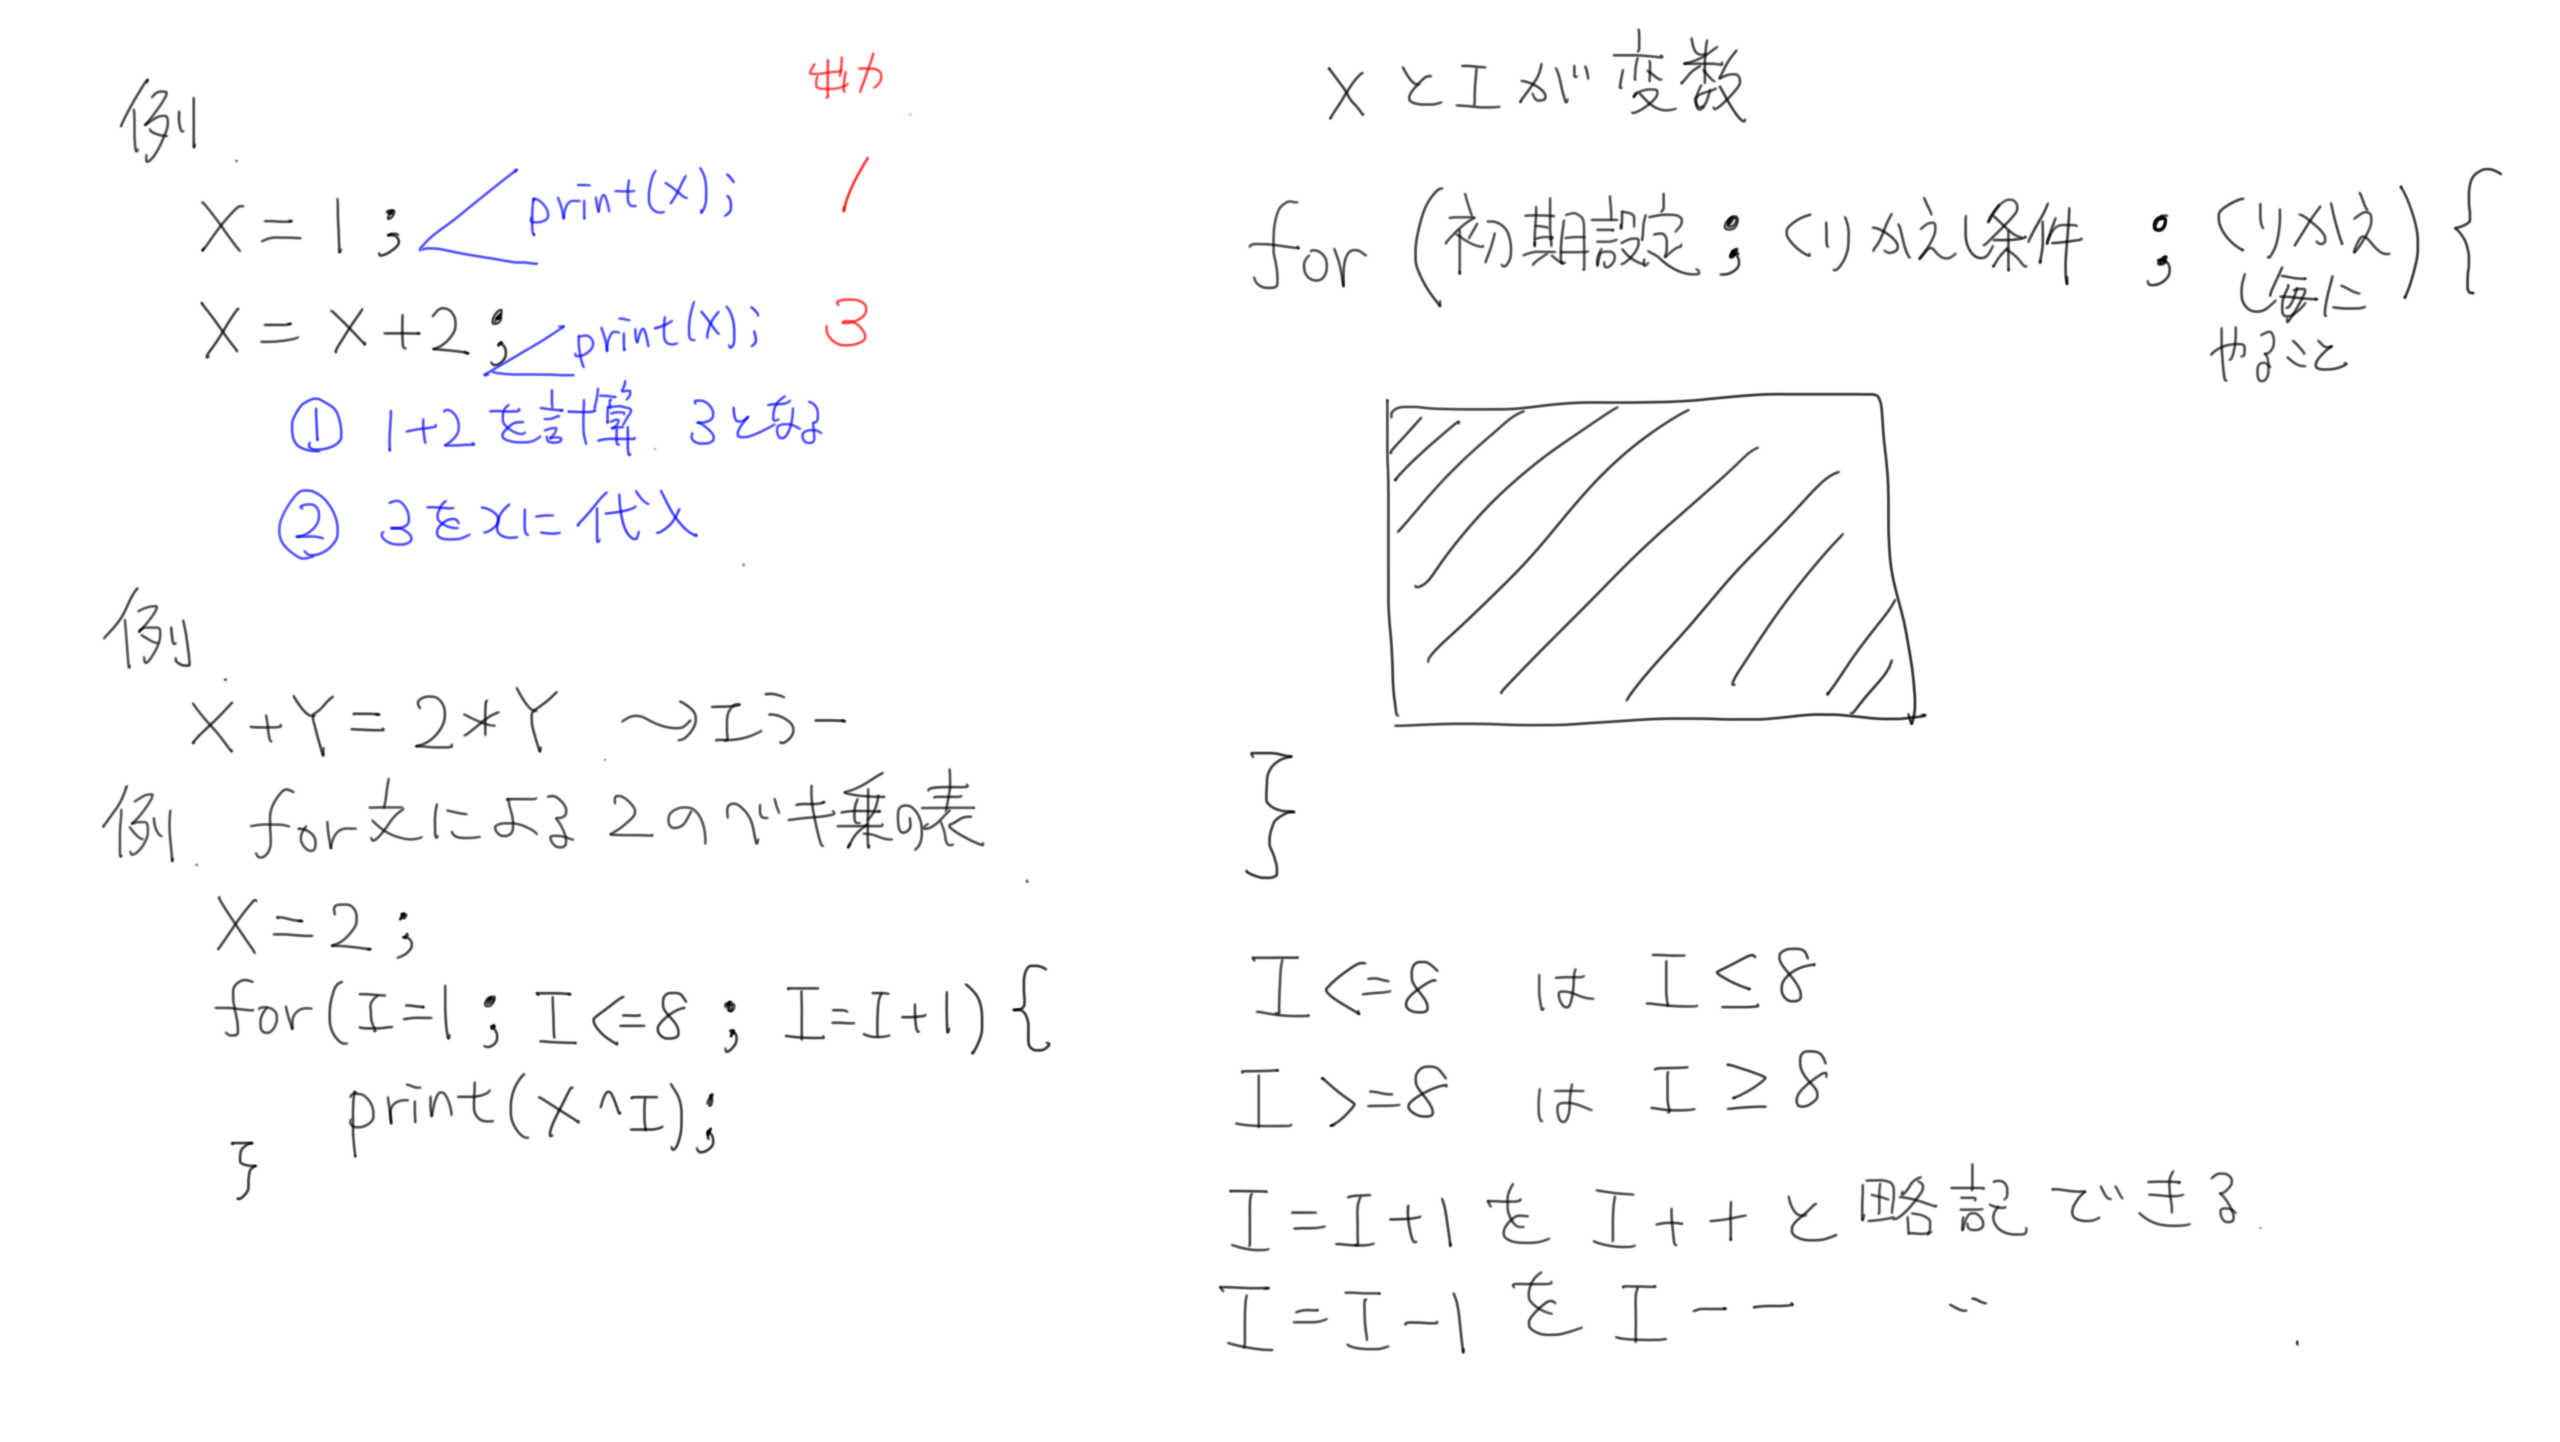 例.
出力
X=1; print(X); 1
X=X+2; print(X); 3
① 1+2を計算. 3となる
② 3をxに代入
例.
X+Y=2*Y →エラー
例. for文による2のべキ乗の表
X=2;
for(I=1; I<=8; I=I+1){
print(X^I);
}
XとIが変数
for(初期設定; くりかえし条件; くりかえ){
し毎に
やること
}
I<=8 は I≤8
I>=8 は I≥8
I=I+1を I++と略記できる.
I=I-1を I-- 〃 .